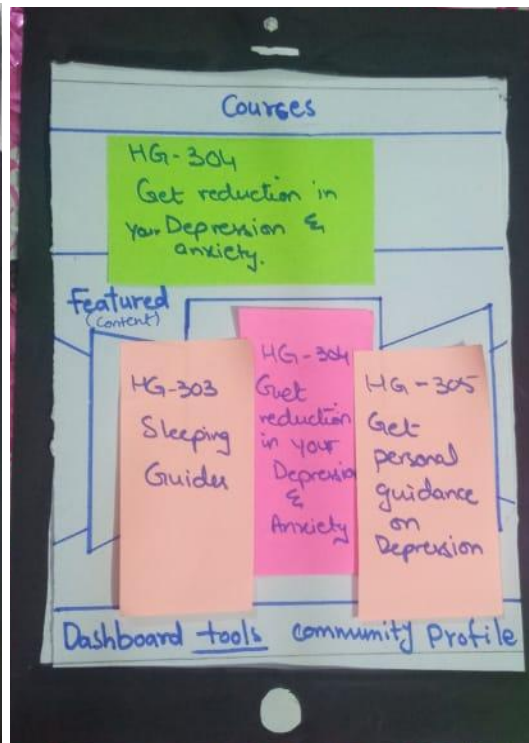 Courses
HG-304
Get reduction in
your Depression &
anxiety.
Featured
(content)
HG-303
Sleeping
Guides
HG-304
Get
reduction
in your
Depression
&
Anxiety
HG-305
Get
personal
guidance
on
Depression
Dashboard tools community Profile